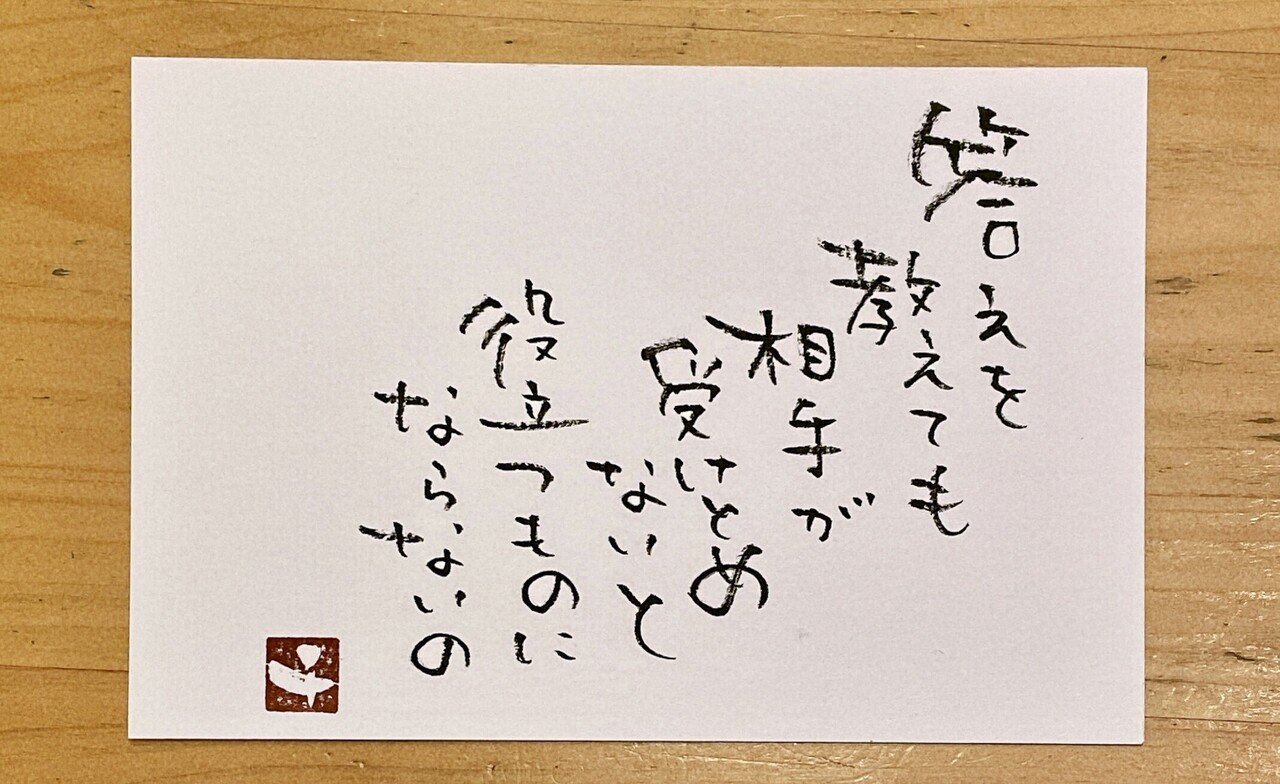 答えを
教えても
相手が
受けとめ
ないと
役立つものに
ならないの